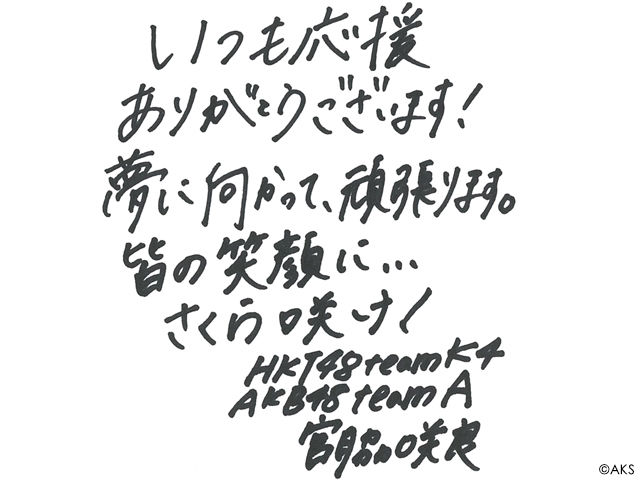 いつも応援
ありがとうございます!
夢に向かって、頑張ります。
皆の笑顔に...
さくら咲け!
HKT48 team K4
AKB48 team A
宮脇咲良
©AKS